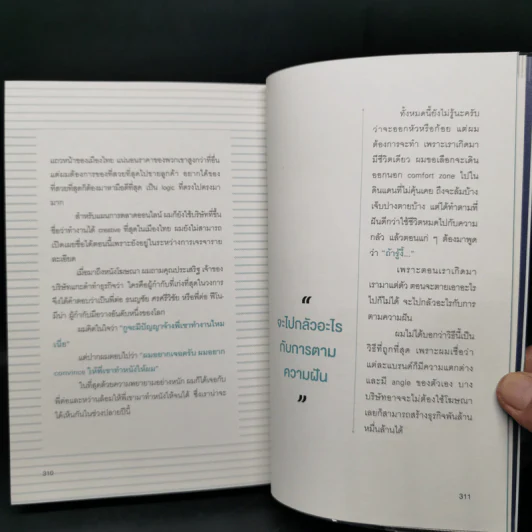 แถวหน้าของเมืองไทย แน่นอนราคาของพวกเขาสูงกว่าที่อื่น
แต่ผมต้องการของที่สวยที่สุดไปขายลูกค้า อยากได้ของ
ที่สวยที่สุดก็ต้องมาหามือดีที่สุด เป็น logic ที่ตรงไปตรงมา
มาก
สำหรับแผนการตลาดออนไลน์ ผมก็ยังใช้บริษัทที่ขึ้น
ชื่อว่าทำงานได้ creative ที่สุดในเมืองไทย ผมยังไม่สามารถ
เปิดเผยชื่อได้ตอนนี้เพราะยังอยู่ในระหว่างการเจรจาราย
ละเอียด
เมื่อมาถึงหนังโฆษณา ผมถามคุณประเสริฐ เจ้าของ
บริษัทแกะดำทำธุรกิจว่า ใครคือผู้กำกับที่เก่งที่สุดในวงการ
จึงได้คำตอบว่าเป็นพี่ต่อ ธนญชัย ศรศรีวิชัย หรือพี่ต่อ ฟีโน-
มีนา ผู้กำกับมือวางอันดับหนึ่งของโลก
ผมคิดในใจว่า "กูจะมีปัญญาจ้างพี่เขาทำงานไหม
เนี่ย"
แต่ปากผมตอบไปว่า "ผมอยากเจอครับ ผมอยาก
convince ให้พี่เขาทำหนังให้ผม"
ในที่สุดด้วยความพยายามอย่างหนัก ผมก็ได้เจอกับ
พี่ต่อและหว่านล้อมให้พี่เขามาทำหนังให้จนได้ ซึ่งเราน่าจะ
ได้เห็นกันในช่วงปลายปีนี้
310
“
จะไปกลัวอะไร
กับการตาม
ความฝัน
”
ทั้งหมดนี้ยังไม่รู้นะครับ
ว่าจะออกหัวหรือก้อย แต่ผม
ต้องการจะทำ เพราะเราเกิดมา
มีชีวิตเดียว ผมขอเลือกจะเดิน
ออกนอก comfort zone ไปใน
ดินแดนที่ไม่คุ้นเคย ถึงจะล้มบ้าง
เจ็บปางตายบ้าง แต่ได้ทำตามที่
ฝันดีกว่าใช้ชีวิตหมดไปกับความ
กลัว แล้วตอนแก่ ๆ ต้องมาพูด
ว่า "ถ้ารู้งี้..."
เพราะตอนเราเกิดมา
เรามาแก่ตัว ตอนจะตายเอาอะไร
ไปก็ไม่ได้ จะไปกลัวอะไรกับการ
ตามความฝัน
ผมไม่ได้บอกว่าวิธีนี้เป็น
วิธีที่ถูกที่สุด เพราะผมเชื่อว่า
แต่ละแบรนด์ก็มีความแตกต่าง
และมี angle ของตัวเอง บาง
บริษัทอาจจะไม่ต้องใช้โฆษณา
เลยก็สามารถสร้างธุรกิจพันล้าน
หมื่นล้านได้
311